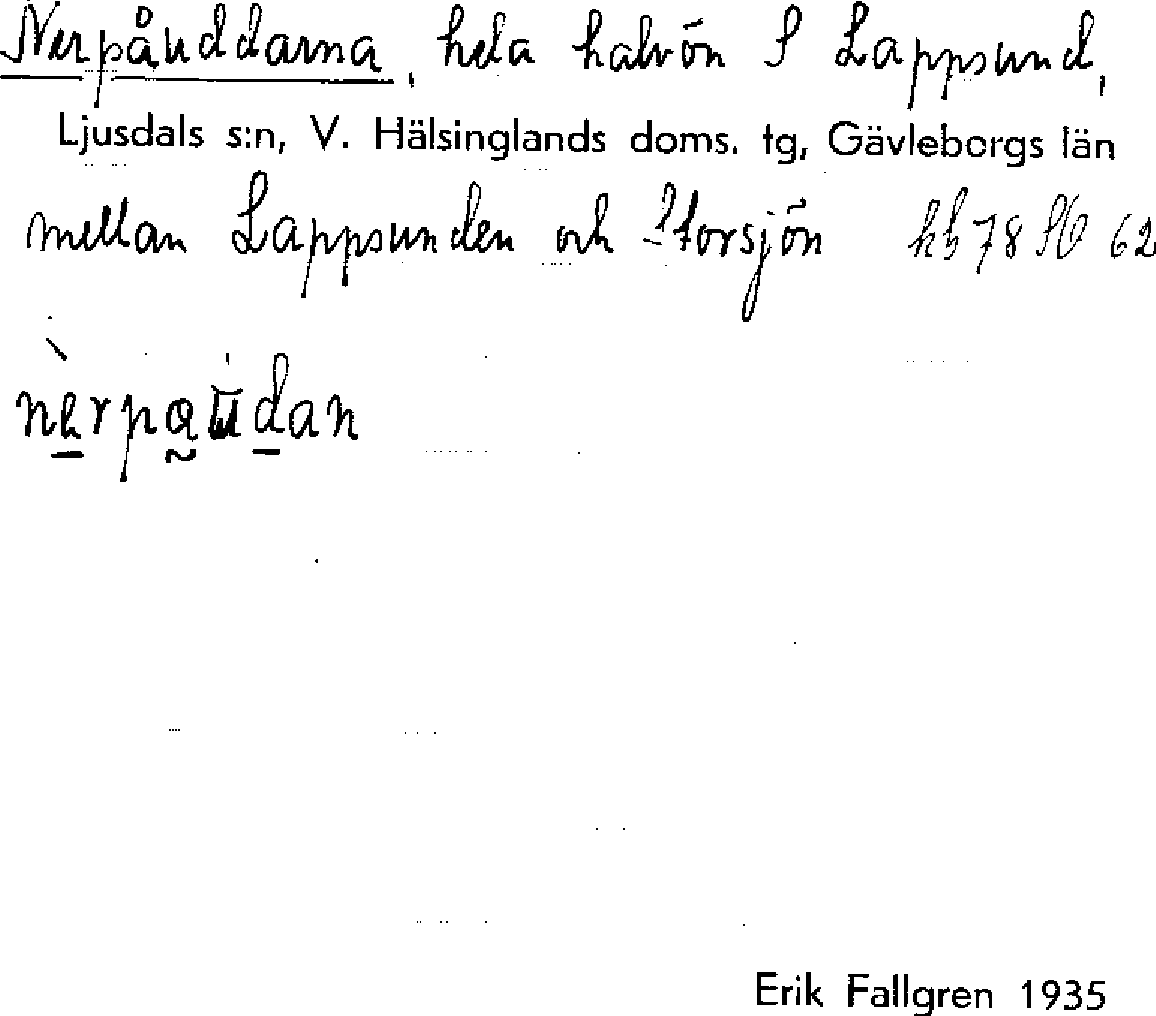 Nerpåuddarna, hela halvön S Lappsund,
Ljusdals s:n, V. Hälsinglands doms. tg, Gävleborgs län
mellan Lappsunden och Storsjön kb 78 SO 62
Erik Fallgren 1935